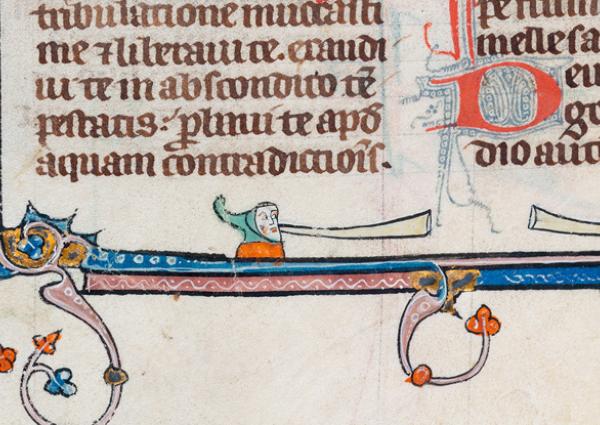 tribulatione inuocasti
me ⁊ liberaui te. exaudi
ui te in abscondito tē
pestatis: ꝓbaui te apd
aquam contradictiōis.
pe frum
melle sa
Deu
go
dio aut